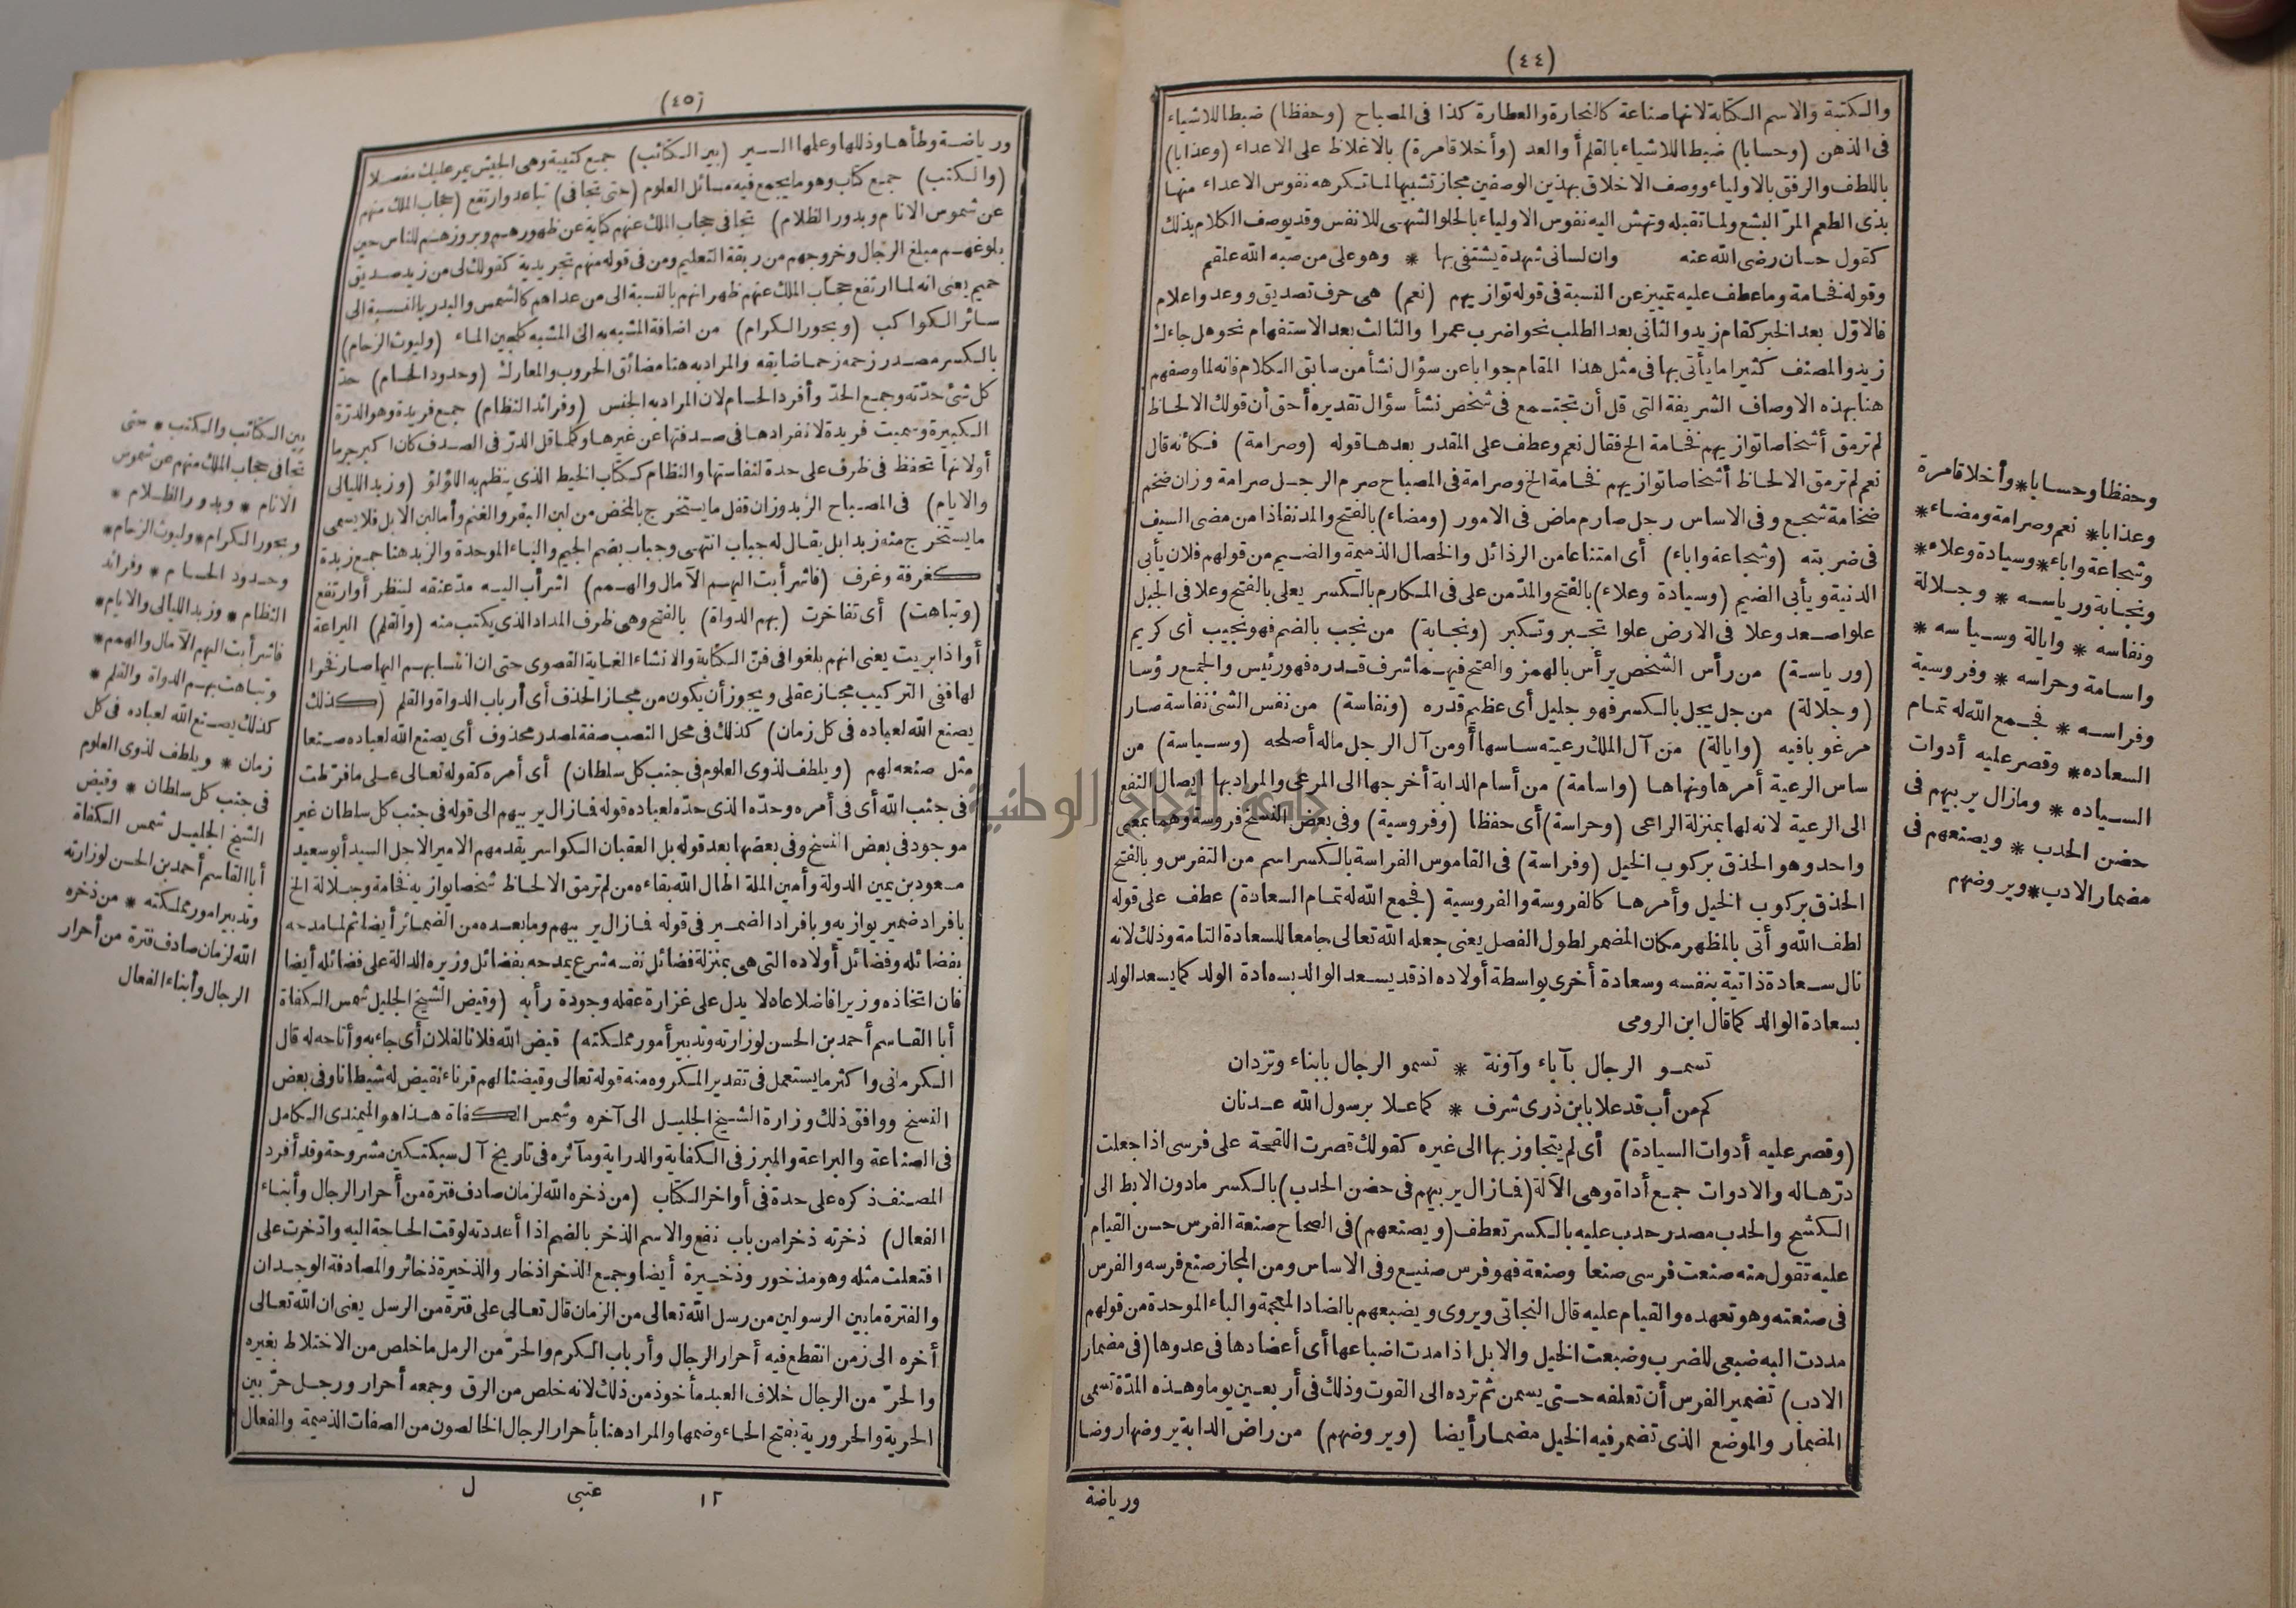 (٤٤)
والكتبة والاسم الكتابة لانها صناعة كالنجارة والعطارة كذا فى المصباح (وحفظا) ضبطا للاشياء
فى الذهن (وحسابا) ضبطا للاشياء بالقلم أو العد (وأخلاقا مرة) بالاغلاظ على الاعداء (وعذابا)
باللطف والرفق بالاولياء ووصف الاخلاق بهذين الوصفين مجاز تشبيها لما تكرهه نفوس الاعداء منها
بذى الطعم المرّ البشع ولما تقبله وتهش اليه نفوس الاولياء بالحلو الشهى للانفس وقد يوصف الكلام بذلك
كقول حسان رضى الله عنه وان لسانى شهدة يشتفى بها * وهو على من صبه الله علقم
وقوله فخامة وما عطف عليه تمييز عن النسبة فى قوله توازيهم (نعم) هى حرف تصديق ووعد واعلام
فالاوّل بعد الخبر كقام زيد والثانى بعد الطلب نحو اضرب عمرا والثالث بعد الاستفهام نحو هل جاءك
زيد والمصنف كثيرا ما يأتى بها فى مثل هذا المقام جوابا عن سؤال نشأ من سابق الكلام فانه لما وصفهم
هنا بهذه الاوصاف الشريفة التى قل أن تجتمع فى شخص نشأ سؤال تقديره أحق أن قولك الالحاظ
لم ترمق أشخاصا توازيهم فخامة الخ فقال نعم وعطف على المقدر بعدها قوله (وصرامة) فكأنه قال
نعم لم ترمق الالحاظ أشخاصا توازيهم فخامة الخ وصرامة فى المصباح صرم الرجل صرامة وزان ضخم
ضخامة شجع وفى الاساس رجل صارم ماض فى الامور (ومضاء) بالفتح والمد نفاذا من مضى السيف
فى ضريبته (وشجاعة واباء) أى امتناعا من الرذائل والخصال الذميمة والضيم من قولهم فلان يأبى
الدنية ويأبى الضيم (وسيادة وعلاء) بالفتح والمدّ من على فى المكارم بالكسر يعلى بالفتح وعلا فى الجبل
علوا صعد وعلا فى الارض علوا تجبر وتكبر (ونجابة) من نجب بالضم فهو نجيب أى كريم
(ورياسة) من رأس الشخص يرأس بالهمز والفتح فيهما شرف قدره فهو رئيس والجمع رؤسا
(وجلالة) من جل يجل بالكسر فهو جليل أى عظيم قدره (ونفاسة) من نفس الشئ نفاسة صار
مرغوبا فيه (وايالة) من آل الملك رعيته ساسها أو من آل الرجل ماله أصلحه (وسياسة) من
ساس الرعية أمرها ونهاها (واسامة) من أسام الدابة أخرجها الى المرعى والمراد بها ايصال النفع
الى الرعية لانه لها بمنزلة الراعى (وحراسة) أى حفظا (وفروسية) وفى بعض النسخ فروسة وهما بمعنى
واحد وهو الحذق بركوب الخيل (وفراسة) فى القاموس الفراسة بالكسر اسم من التفرس وبالفتح
الحذق بركوب الخيل وأمرها كالفروسة والفروسية (فجمع الله له تمام السعادة) عطف على قوله
لطف الله وأتى بالمظهر مكان المضمر لطول الفصل يعنى جعله الله تعالى جامعا للسعادة التامة وذلك لانه
نال سعادة ذاتية بنفسه وسعادة أخرى بواسطة أولاده اذ قد يسعد الوالد بسعادة الولد كما يسعد الولد
بسعادة الوالد كما قال ابن الرومى
تسمو الرجال بآباء وآونة * تسمو الرجال بابناء وتزدان
كم من أب قد علا بابن ذرى شرف * كما علا برسول الله عدنان
(وقصر عليه أدوات السيادة) أى لم يتجاوز بها الى غيره كقولك قصرت اللقحة على فرسى اذا جعلت
درّها له والادوات جمع أداة وهى الآلة (فما زال يربيهم فى حضن الحدب) بالكسر مادون الابط الى
الكشح والحدب مصدر حدب عليه بالكسر تعطف (ويصنعهم) فى الصحاح صنعة الفرس حسن القيام
عليه تقول منه صنعت فرسى صنعا وصنعة فهو فرس صنيع وفى الاساس ومن المجاز صنع فرسه والفرس
فى صنعته وهو تعهده والقيام عليه قال النجاتى ويروى ويضبعهم بالضاد المعجمة والباء الموحدة من قولهم
مددت اليه ضبعى للضرب وضبعت الخيل والابل اذا مدت اضباعها أى أعضادها فى عدوها (فى مضمار
الادب) تضمير الفرس أن تعلفه حتى يسمن ثم ترده الى القوت وذلك فى أربعين يوما وهذه المدّة تسمى
المضمار والموضع الذى تضمر فيه الخيل مضمار أيضا (ويروضهم) من راض الدابة يروضها روضا
ورياضة
وحفظا وحسابا * وأخلاقا مرة
وعذابا * نعم وصرامة ومضاء *
وشجاعة واباء * وسيادة وعلاء *
ونجابة ورياسه * وجلالة
ونفاسه * وايالة وسياسه *
واسامة وحراسه * وفروسية
وفراسه * فجمع الله له تمام
السعاده * وقصر عليه أدوات
السياده * ومازال يربيهم فى
حضن الحدب * ويصنعهم فى
مضمار الادب * ويروضهم
(٤٥)
ورياضة وطأها وذللها وعلمها السير (بين الكتائب) جمع كتيبة وهى الجيش يمر عليك مفصلا
(والكتب) جمع كتاب وهو ما يجمع فيه مسائل العلوم (حتى تجافى) تباعد وارتفع (حجاب الملك منهم
عن شموس الانام وبدور الظلام) تجافى حجاب الملك عنهم كناية عن ظهورهم وبروزهم للناس حين
بلوغهم مبلغ الرجال وخروجهم من ربقة التعليم ومن فى قوله منهم تجريدية كقولك لى من زيد صديق
حميم يعنى انه لما ارتفع حجاب الملك عنهم ظهر انهم بالنسبة الى من عداهم كالشمس والبدر بالنسبة الى
سائر الكواكب (وبحور الكرام) من اضافة المشبه به الى المشبه كلجين الماء (وليوث الزحام)
بالكسر مصدر زحمه زحما ضايقه والمراد به هنا مضائق الحروب والمعارك (وحدود الحسام) حدّ
كل شئ حدّته وجمع الحدّ وأفرد الحسام لان المراد به الجنس (وفرائد النظام) جمع فريدة وهو الدرّة
الكبيرة وسميت فريدة لانفرادها فى صدفتها عن غيرها وكلما قل الدرّ فى الصدف كان اكبر جرما
أو لانها تحفظ فى ظرف على حدة لنفاستها والنظام ككتاب الخيط الذى ينظم به اللؤلؤ (وزبد الليالى
والايام) فى المصباح الزبد وزان قفل ما يستخرج بالمخض من لبن البقر والغنم وأما لبن الابل فلا يسمى
ما يستخرج منه زبدا بل يقال له جباب انتهى وجباب بضم الجيم والباء الموحدة والزبد هنا جمع زبدة
كغرفة وغرف (فاشرأبت اليهم الآمال والهمم) اشرأب اليه مدّ عنقه لينظر أو ارتفع
(وتباهت) أى تفاخرت (بهم الدواة) بالفتح وهى ظرف المداد الذى يكتب منه (والقلم) اليراعة
أو اذا بريت يعنى انهم بلغوا فى فنّ الكتابة والانشاء الغاية القصوى حتى ان انتسابهم اليها صار فخرا
لها ففى التركيب مجاز عقلى ويجوز أن يكون من مجاز الحذف أى أرباب الدواة والقلم (كذلك
يصنع الله لعباده فى كل زمان) كذلك فى محل النصب صفة لمصدر محذوف أى يصنع الله لعباده صنعا
مثل صنعه لهم (ويلطف لذوى العلوم فى جنب كل سلطان) أى أمره كقوله تعالى على ما فرّطت
فى جنب الله أى فى أمره وحدّه الذى حدّه لعباده قوله فما زال يربيهم الى قوله فى جنب كل سلطان غير
موجود فى بعض النسخ وفى بعضها بعد قوله بل العقبان الكواسر يقدمهم الامير الاجل السيد أبو سعيد
مسعود بن يمين الدولة وأمين الملة اطال الله بقاءه من لم ترمق الالحاظ شخصا يوازيه فخامة وجلالة الخ
بافراد ضمير يوازيه وبافراد الضمير فى قوله فما زال يربيهم وما بعده من الضمائر أيضا ثم لما مدحه
بفضائله وفضائل أولاده التى هى بمنزلة فضائل نفسه شرع يمدحه بفضائل وزيره الدالة على فضائله أيضا
فان اتخاذه وزيرا فاضلا عادلا يدل على غزارة عقله وجودة رأيه (وقيض الشيخ الجليل شمس الكفاة
أبا القاسم أحمد بن الحسن لوزارته وتدبير أمور مملكته) قيض الله فلانا لفلان أى جاء به وأتاحه له قال
الكرمانى واكثر ما يستعمل فى تقدير المكروه منه قوله تعالى وقيضنا لهم قرناء نقيض له شيطانا وفى بعض
النسخ ووافق ذلك وزارة الشيخ الجليل الى آخره وشمس الكفاة هذا هو الميمندى الكامل
فى الصناعة والبراعة والمبرز فى الكفاية والدراية ومآثره فى تاريخ آل سبكتكين مشروحة وقد أفرد
المصنف ذكره على حدة فى أواخر الكتاب (من ذخره الله لزمان صادف فترة من أحرار الرجال وأبناء
الفعال) ذخرته ذخرا من باب نفع والاسم الذخر بالضم اذا أعددته لوقت الحاجة اليه وادّخرت على
افتعلت مثله وهو مذخور وذخيرة أيضا وجمع الذخر اذخار والذخيرة ذخائر والمصادفة الوجدان
والفترة ما بين الرسولين من رسل الله تعالى من الزمان قال تعالى على فترة من الرسل يعنى ان الله تعالى
أخره الى زمن انقطع فيه أحرار الرجال وأرباب الكرم والحرّ من الرمل ما خلص من الاختلاط بغيره
والحرّ من الرجال خلاف العبد مأخوذ من ذلك لانه خلص من الرق وجمعه أحرار ورجل حرّ بين
الحرية والحرورية بفتح الحاء وضمها والمراد هنا بأحرار الرجال الخالصون من الصفات الذميمة والفعال
١٢ عتبى ل
بين الكتائب والكتب * حتى
تجافى حجاب الملك منهم عن شموس
الانام * وبدور الظلام *
وبحور الكرام * وليوث الزحام *
وحدود الحسام * وفرائد
النظام * وزبد الليالى والايام *
فاشرأبت اليهم الآمال والهمم *
وتباهت بهم الدواة والقلم *
كذلك يصنع الله لعباده فى كل
زمان * ويلطف لذوى العلوم
فى جنب كل سلطان * وقيض
الشيخ الجليل شمس الكفاة
أبا القاسم أحمد بن الحسن لوزارته
وتدبير امور مملكته * من ذخره
الله لزمان صادف فترة من أحرار
الرجال وأبناء الفعال
جامعة النجاح الوطنية